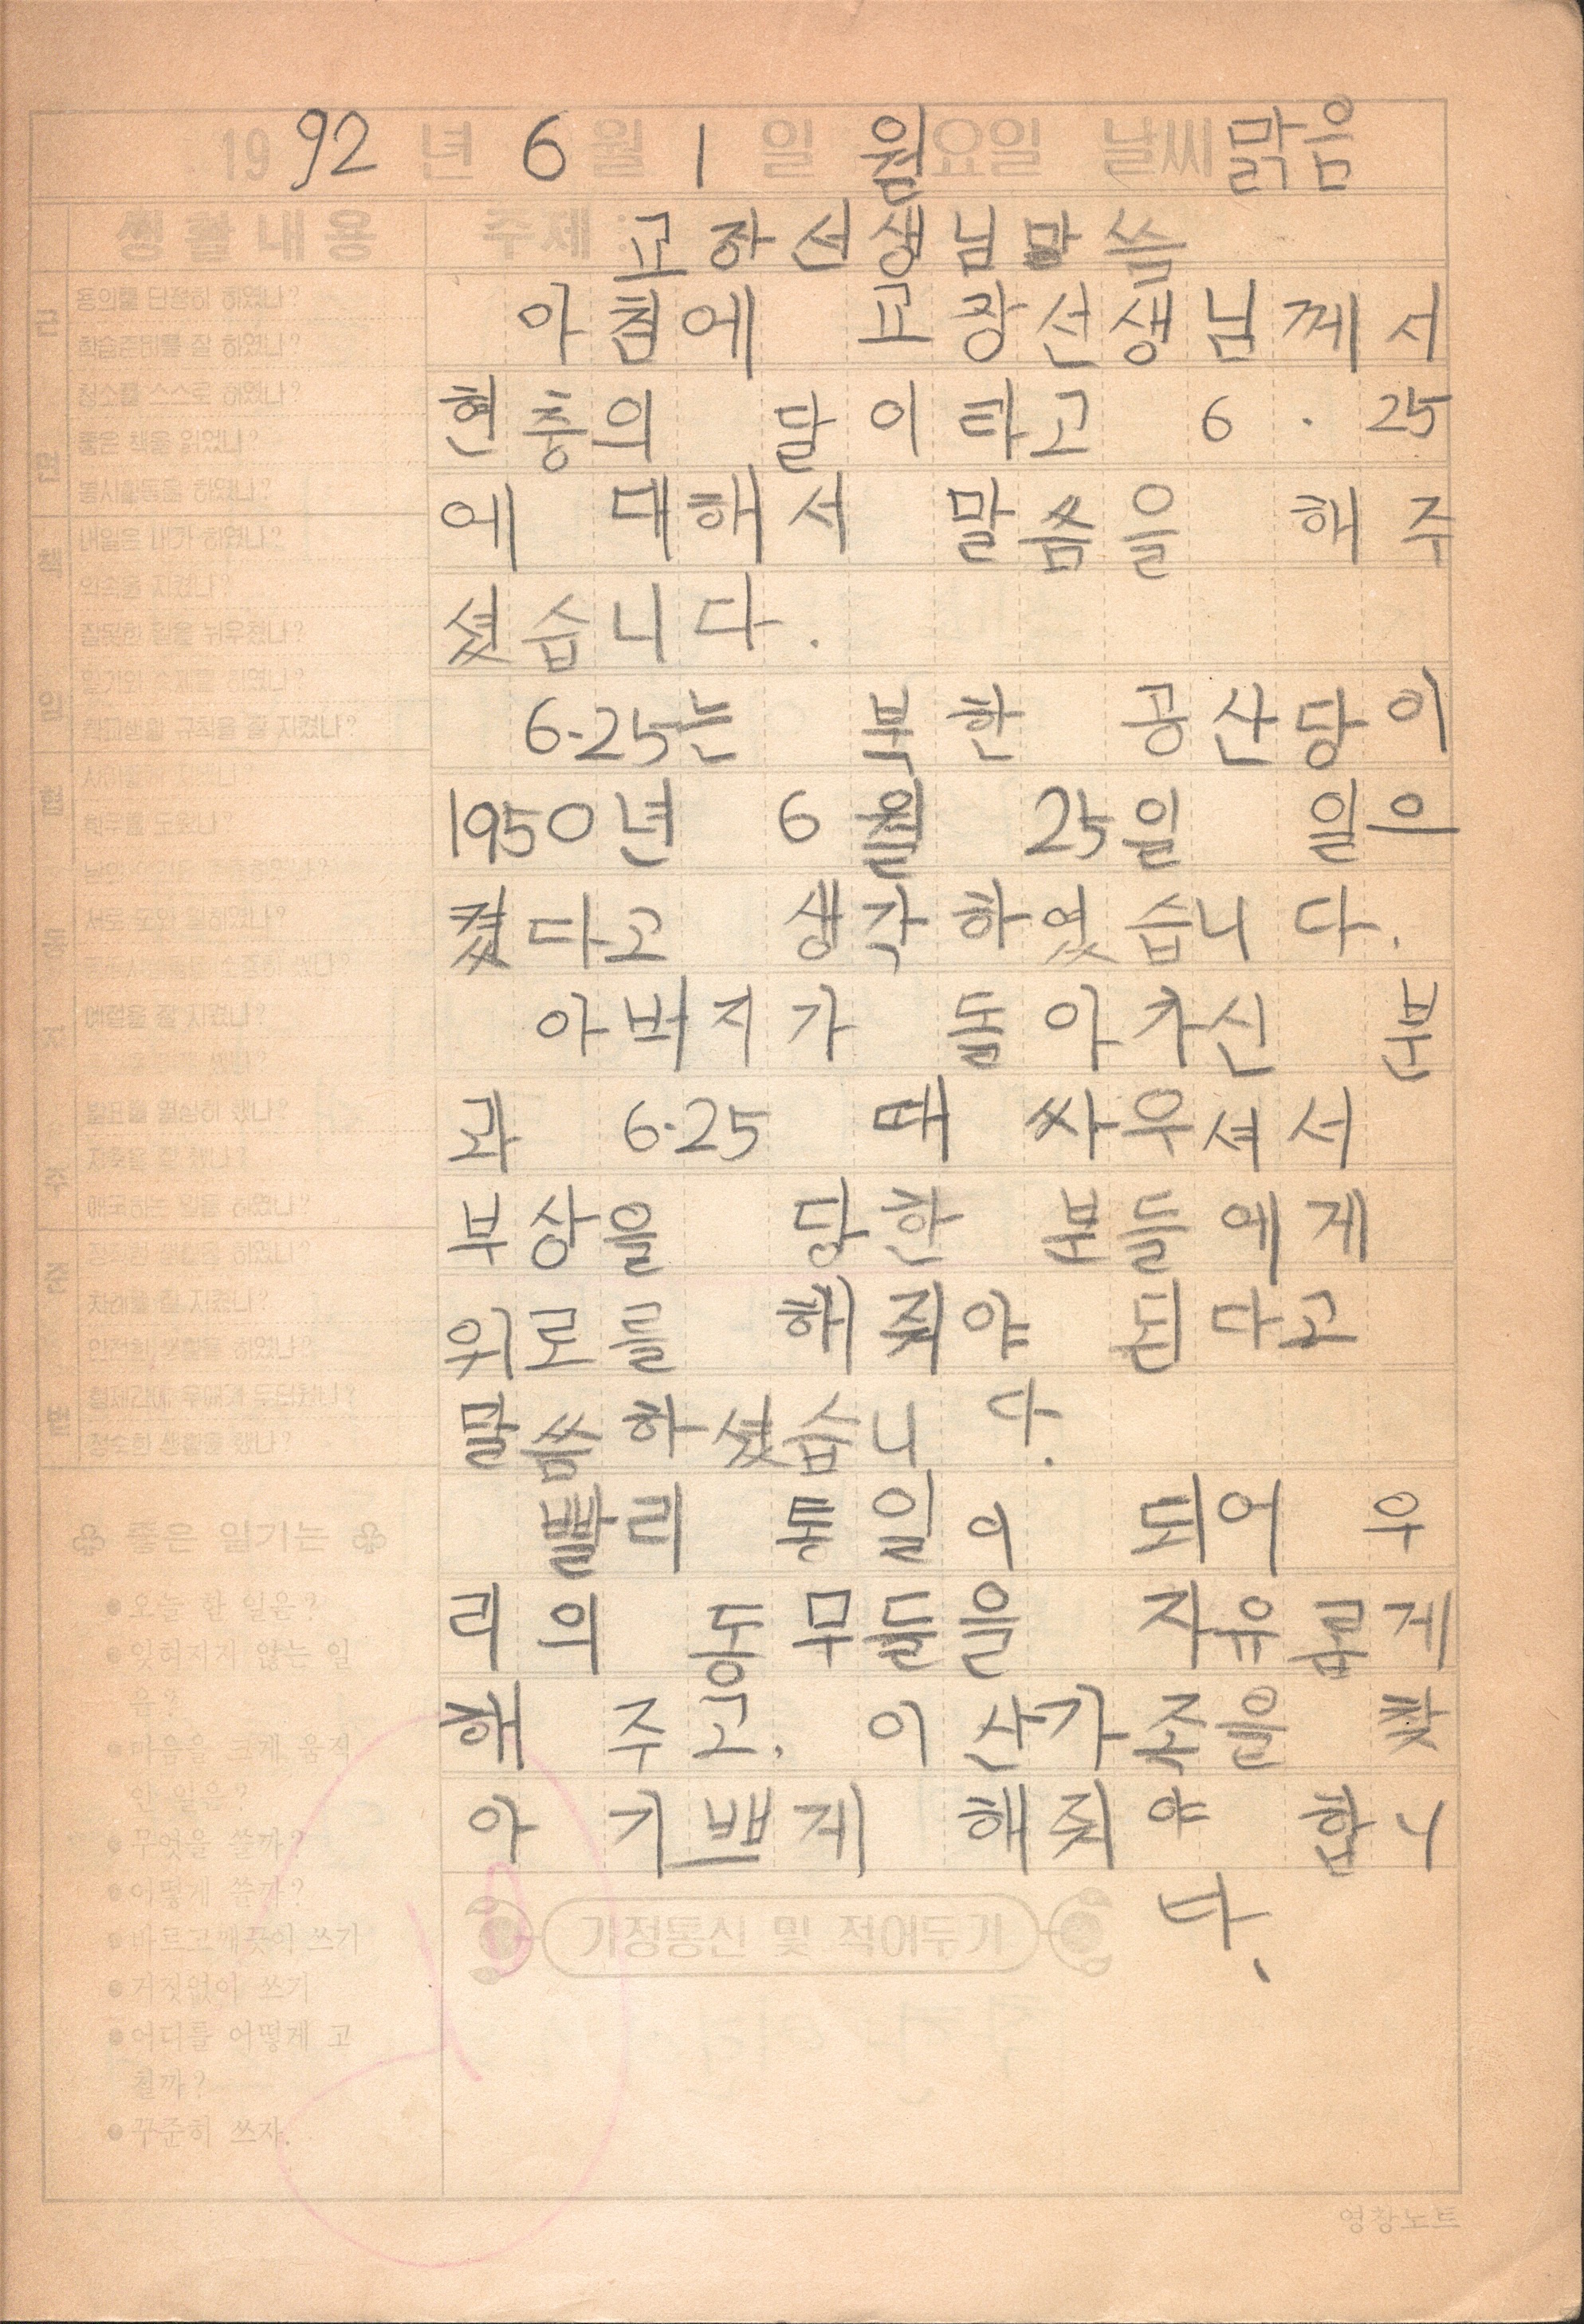 1992년 6월 1일 월요일 날씨 맑음
생활내용 주제: 교장선생님 말씀
용의를 단정히 하였나?
학습준비를 잘 하였나?
청소를 스스로 하였나?
좋은 책을 읽었나?
봉사활동을 하였나?
내일은 내가 하였나?
약속을 지켰나?
잘못한 일을 뉘우쳤나?
일기와 숙제를 하였나?
학교생활 규칙을 잘 지켰나?
예절을 잘 지켰나?
발표를 열심히 했나?
저축을 잘 했나?
애국하는 일을 하였나?
차례를 잘 지켰나?
안전한 생활을 하였나?
형제간에 우애가 두터웠나?
정숙한 생활을 했나?
아침에 교장선생님께서
현충의 달이라고 6.25
에 대해서 말씀을 해주
셨습니다.
6.25는 북한 공산당이
1950년 6월 25일 일으
켰다고 생각하였습니다.
아버지가 돌아가신 분
과 6.25 때 싸우셔서
부상을 당한 분들에게
위로를 해줘야 된다고
말씀하셨습니다.
빨리 통일의 되어 우
리의 동무들을 자유롭게
해 주고, 이산가족을 찾
아 기쁘게 해줘야 합니
다.
좋은 일기는
●오늘 한 일은?
●잊혀지지 않는 일
은?
●마음을 크게 움직
인 일은?
●무엇을 쓸까?
●어떻게 쓸까?
●바르고깨끗이 쓰기
●거짓없이 쓰기
●어디를 어떻게 고
칠까?
●꾸준히 쓰자.
가정통신 및 적어두기
영창노트